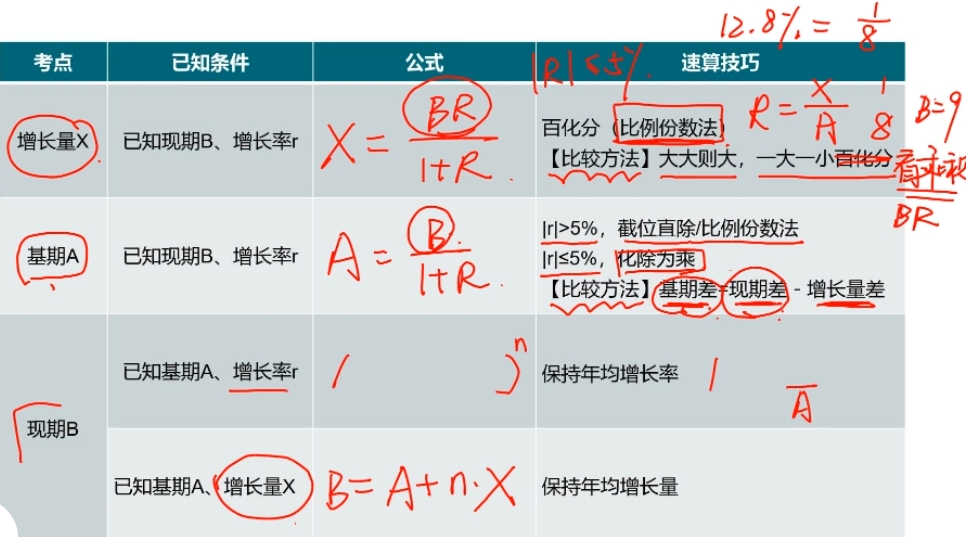 12.8% = 1/8
考点 已知条件 公式 速算技巧
|R|≤5%
增长量X 已知现期B、增长率r X = BR/1+R 百化分（比例份数法）
R = X/A 1/8 B=9
【比较方法】大大则大，一大一小百化分
BR
基期A 已知现期B、增长率r A = B/1+R |r|>5%，截位直除/比例份数法
|r|≤5%，化除为乘
【比较方法】基期差=现期差 - 增长量差
现期B
已知基期A、增长率r ( )n 保持年均增长率
A
已知基期A、增长量X B = A+n·X 保持年均增长量